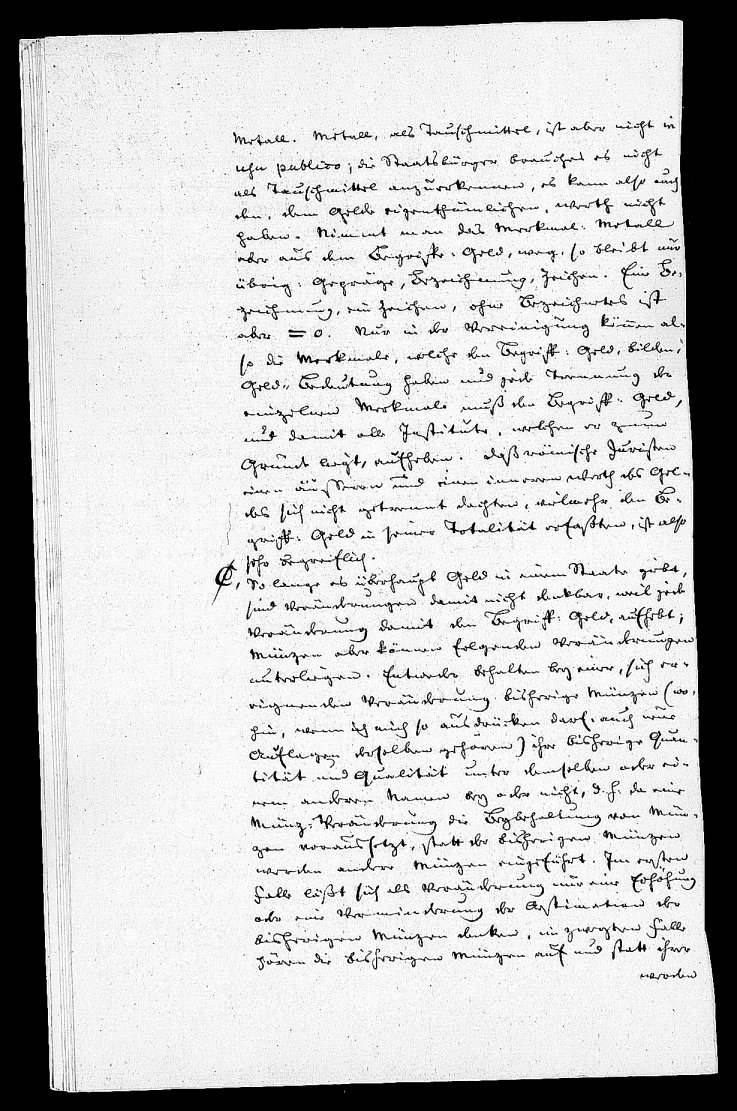 Metall. Metall, als Tauschmittel, ist aber nicht in
usu publico; die Staatsbürger brauchen es nicht
als Tauschmittel anzuerkennen, es kann also auch
den, dem Gelde eigenthümlichen, Werth nicht
haben. Nimmt man das Merkmal: Metall
aber aus dem Begriffe: Geld, weg, so bleibt nur
übrig: Gepräge, Bezeichnung, Zeichen. Eine Be-
zeichnung, ein Zeichen, ohne Bezeichnetes ist
aber = 0. Nur in der Vereinigung können al-
so die Merkmale, welche den Begriff: Geld, bilden,
Geld: Bedeutung haben und jede Trennung der
einzelnen Merkmale muß den Begriff: Geld,
und damit alle Institute, welchen er zum
Grunde liegt, aufheben. Daß römische Juristen
einen äusseren und einen inneren Werth des Gel-
des sich nicht getrennt dachten, vielmehr den Be-
griff: Geld in seiner Totalität erfaßten, ist also
sehr begreiflich.
C, So lange es überhaupt Geld in einem Staate giebt,
sind Veränderungen damit nicht denkbar, weil jede
Veränderung damit den Begriff: Geld, aufhebt;
Münzen aber können folgenden Veränderungen
unterliegen. Entweder behalten bey einer, sich er-
eignenden Veränderung bisherige Münzen (wo-
hin, wenn ich mich so ausdrücken darf, auch neue
Auflagen derselben gehören) ihre bisherige Quan-
tität und Qualität unter demselben oder ei-
nem anderen Namen bey oder nicht, d. h. da eine
Münz-Veränderung die Beybehaltung von Mün-
zen voraussetzt, statt der bisherigen Münzen
werden andere Münzen eingeführt. Im ersten
Falle läßt sich als Veränderung nur eine Erhöhung
oder eine Verminderung der Aestimation der
bisherigen Münzen denken, im zweyten Falle
hören die bisherigen Münzen auf und statt ihrer
werden